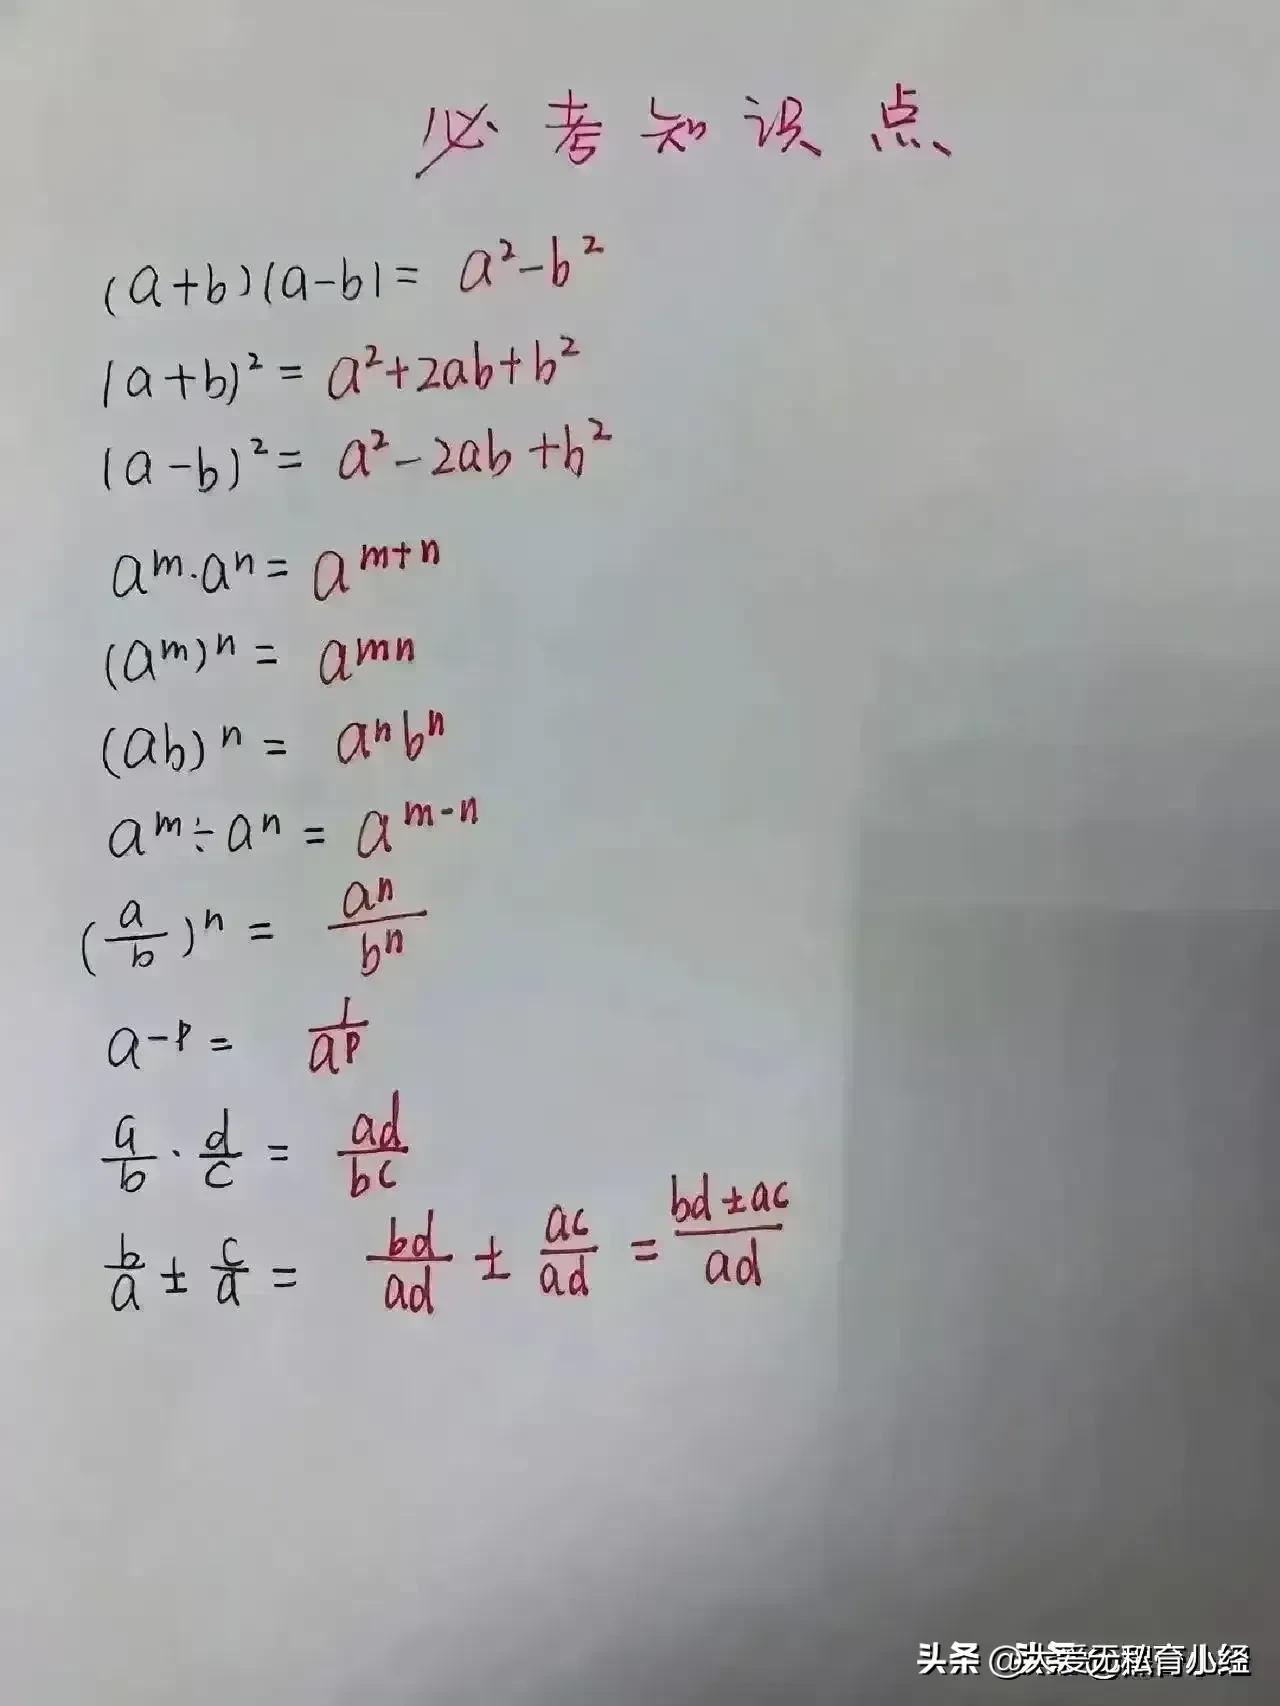 必考知识点
(a+b)(a-b)= a²-b²
(a+b)²= a²+2ab+b²
(a-b)²= a²-2ab+b²
aᵐ·aⁿ= aᵐ⁺ⁿ
(aᵐ)ⁿ= aᵐⁿ
(ab)ⁿ= aⁿbⁿ
aᵐ÷aⁿ= aᵐ⁻ⁿ
(a/b)ⁿ= aⁿ/bⁿ
a⁻ᵖ= 1/aᵖ
a/b · d/c = ad/bc
b/a ± c/d = bd/ad ± ac/ad = (bd±ac)/ad
头条 @大爱无私育小经